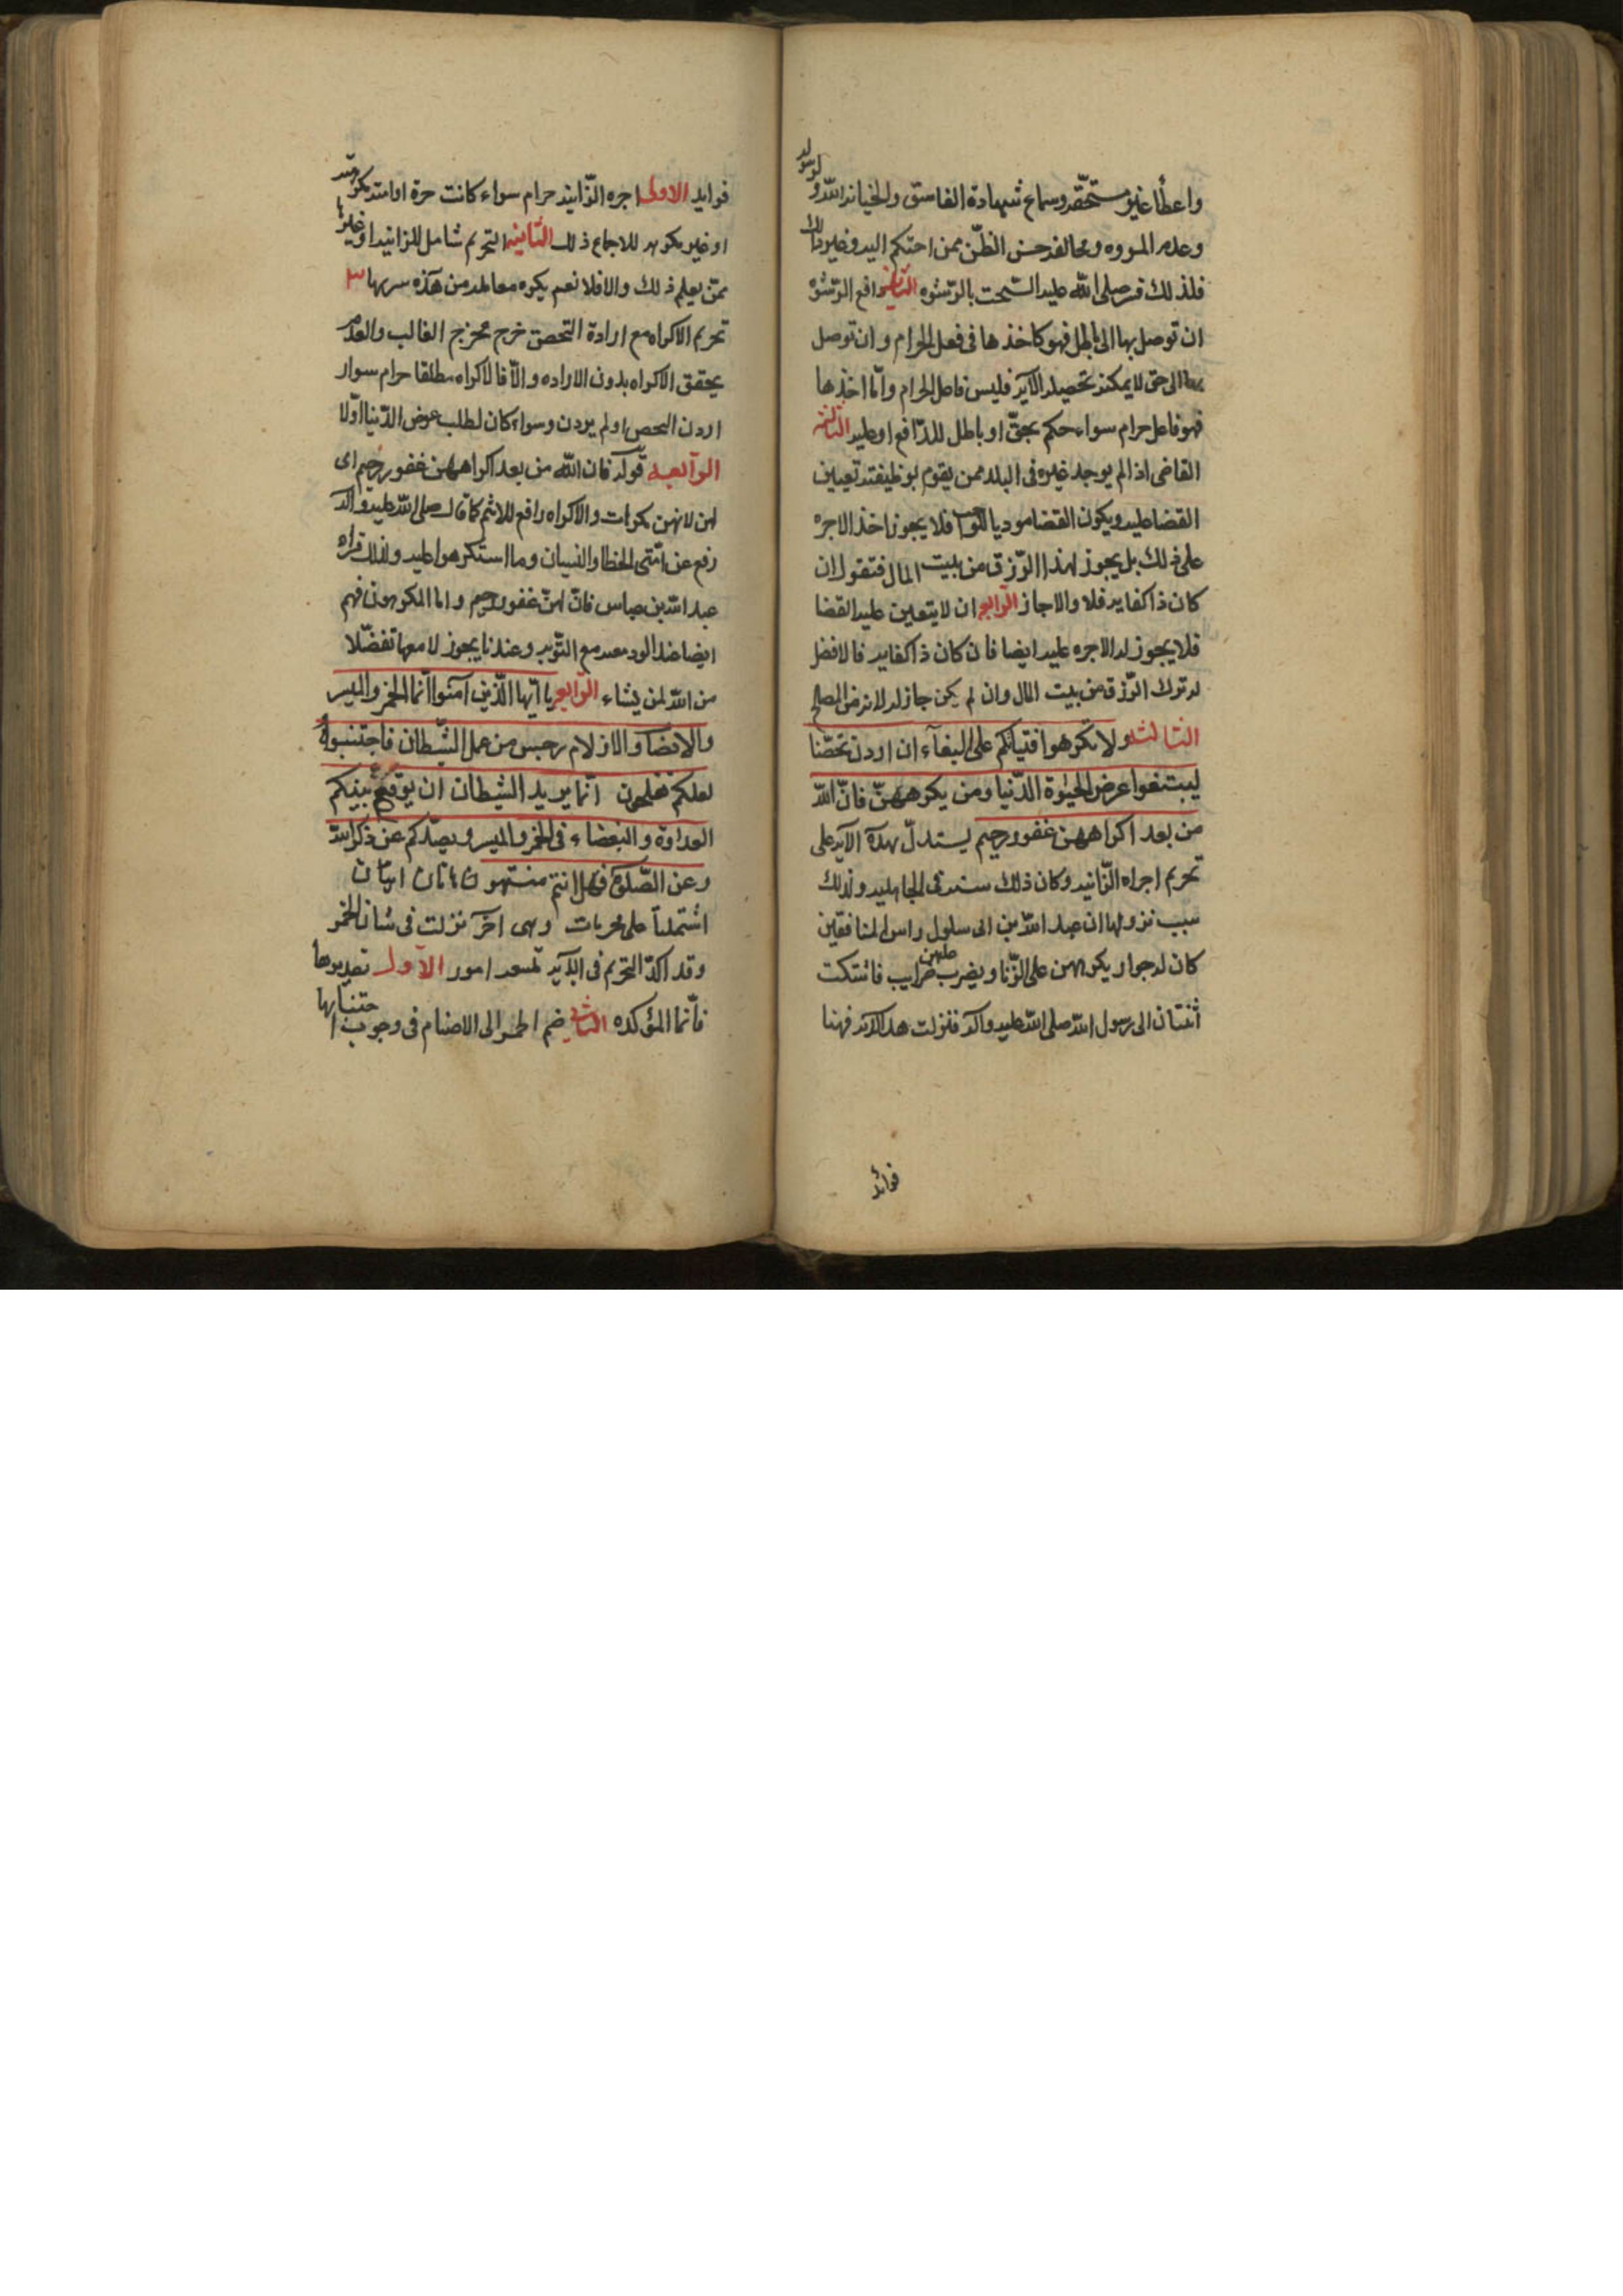 واعطأ غير مستحقه وسماع شهادة الفاسق والخيانه لله ولرسوله
وعدم المروه ومخالفه حسن الظن ممن احتكم اليه وغير ذلك
فلذلك فسر صلى الله عليه السحت بالرشوه الثانيه دافع الرشوه
ان توصل بها الى باطل فهو كاخذها فى فعل الحرام وان توصل
بها الى حق لا يمكنه تحصيله الا به فليس فاعل الحرام وانما اخذها
فهو فاعل حرام سواء حكم بحق او باطل للدافع او عليه الثالثه
القاضى اذا لم يوجد غيره فى البلد ممن يقوم بوظيفته تعيين
القضا عليه ويكون القضا موديا للواجب فلا يجوز اخذ الاجره
على ذلك بل يجوز لهذا الرزق من بيت المال فنقول ان
كان ذا كفايه فلا والا جاز الرابعه ان لا يتعين عليه القضا
فلا يجوز له الاجره عليه ايضا فان كان ذا كفايه فالافضل
له ترك الرزق من بيت المال وان لم يكن جاز له لانه من المصالح
الثالثه ولا تكرهوا فتياتكم على البغآء ان اردن تحصّنا
ليبتغوا عرض الحيوة الدّنيا ومن يكرههنّ فانّ الله
من بعد اكراههن غفور رحيم يستدلّ بهذه الآيه على
تحريم اجراه الزّانيه وكان ذلك سنه فى الجاهليه ولذلك
سبب نزولها ان عبد الله بن ابى سلول راس المنافقين
كان له جوار يكرههن على الزّنا ويضرب عليهن ضرايب فاشتكت
اثنتان الى رسول الله صلى الله عليه وآله فنزلت هذه الآيه فهنا
فوائد
فوايد الاولى اجره الزّانيه حرام سواء كانت حرة او امته مكرهته
او غير مكرهه للاجماع ذلك الثانيه التحريم شامل للزانيه او غيرها
ممّن يعلم ذلك والا فلا نعم يكره معاملة من هذه سربها ٣
تحريم الاكراه مع ارادة التحصن خرج مخرج الغالب ولعدم
يحقق الاكراه بدون الاراده والّا فالاكراه مطلقا حرام سوار
اردن التحصن او لم يردن وسواء كان لطلب عرض الدّنيا اوّلا
الرآبعه قوله فان الله من بعد اكراههن غفور رحيم اى
لهن لانهن مكرهات والاكراه رافع للاثم كما قال صلى الله عليه وآله
رفع عن امّتى الخطا والنسيان وما استكرهوا عليه ولذلك قراه
عبد الله بن عباس فانّ لهنّ غفور رحيم واما المكرهون فهم
ايضا عند الوعيد مع التّوبه وعندنا يجوز لا معها تفضّلا
من الله لمن يشاء الرّابعه يا ايّها الّذين آمنوا انّما الخمر والميسر
والانصاب والازلام رجس من عمل الشّيطان فاجتنبوه
لعلكم تفلحون انّما يريد الشيطان ان يوقع بينكم
العداوة والبغضاء فى الخمر والميسر ويصدّكم عن ذكر الله
وعن الصّلوة فهل انتم منتهون هاتان ايتان
اشتملتا على محرمات وهى آخر نزلت فى شان الخمر
وقد اكدّ التحريم فى الآيه تسعه امور الآول تصديرها
فآنّما المؤكده الثانى ضم الخمر الى الاصنام فى وجوب اجتنابها